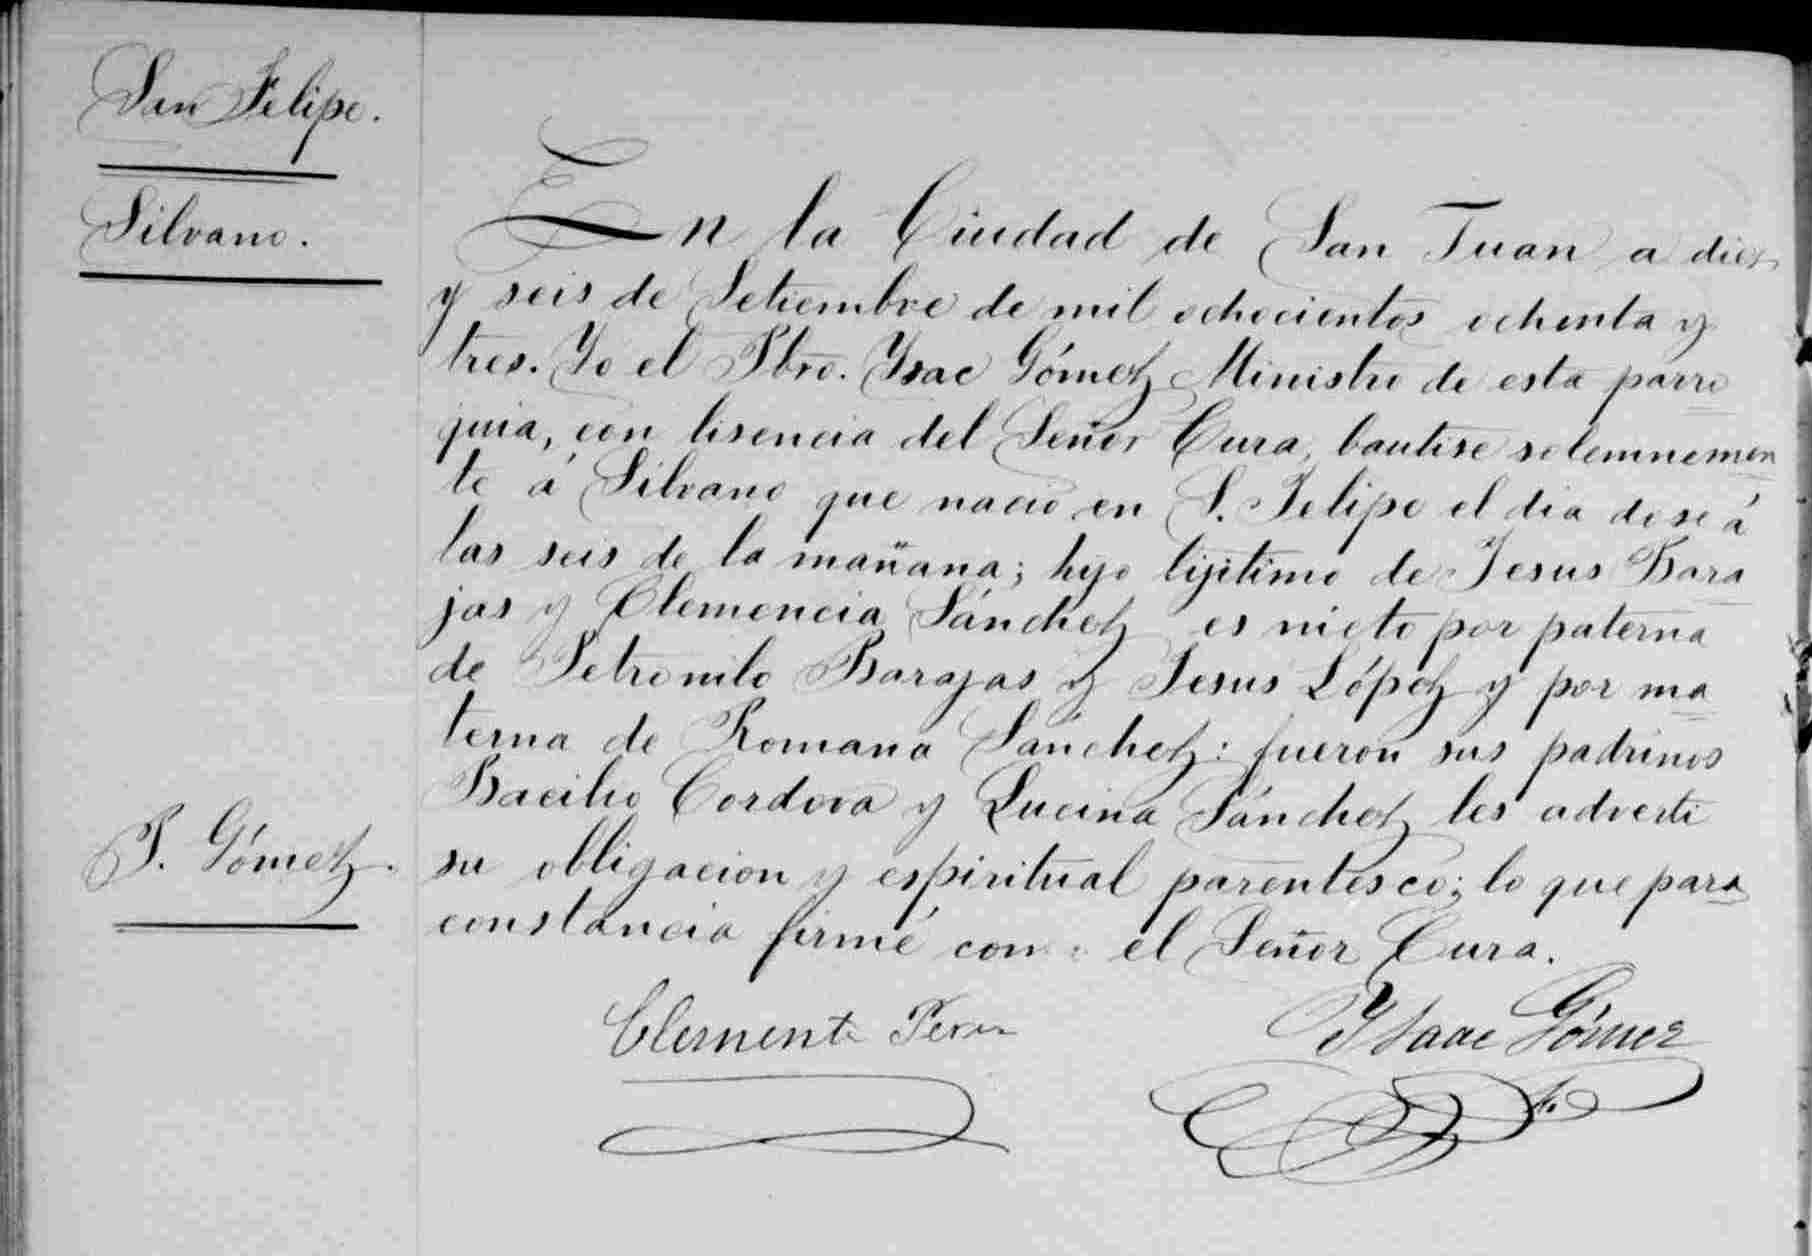 San Felipe.
Silvano.
En la Ciudad de San Juan a diez
y seis de Setiembre de mil ochocientos ochenta y
tres. Yo el Pbro. Ysac Gómez Ministro de esta parro
quia, con lisencia del Señor Cura, bautise solemnemen
te á Silvano que nacio en S. Felipe el dia dose á
las seis de la mañana; hijo lijitimo de Jesus Bara
jas y Clemencia Sánchez es nieto por paterna
de Petronilo Barajas y Jesus López y por ma
terna de Romana Sánchez: fueron sus padrinos
Bacilio Cordova y Lucina Sánchez les adverti
su obligacion y espiritual parentesco; lo que para
constancia firmé con el Señor Cura.
P. Gómez.
Clemente
Ysaac Gómez